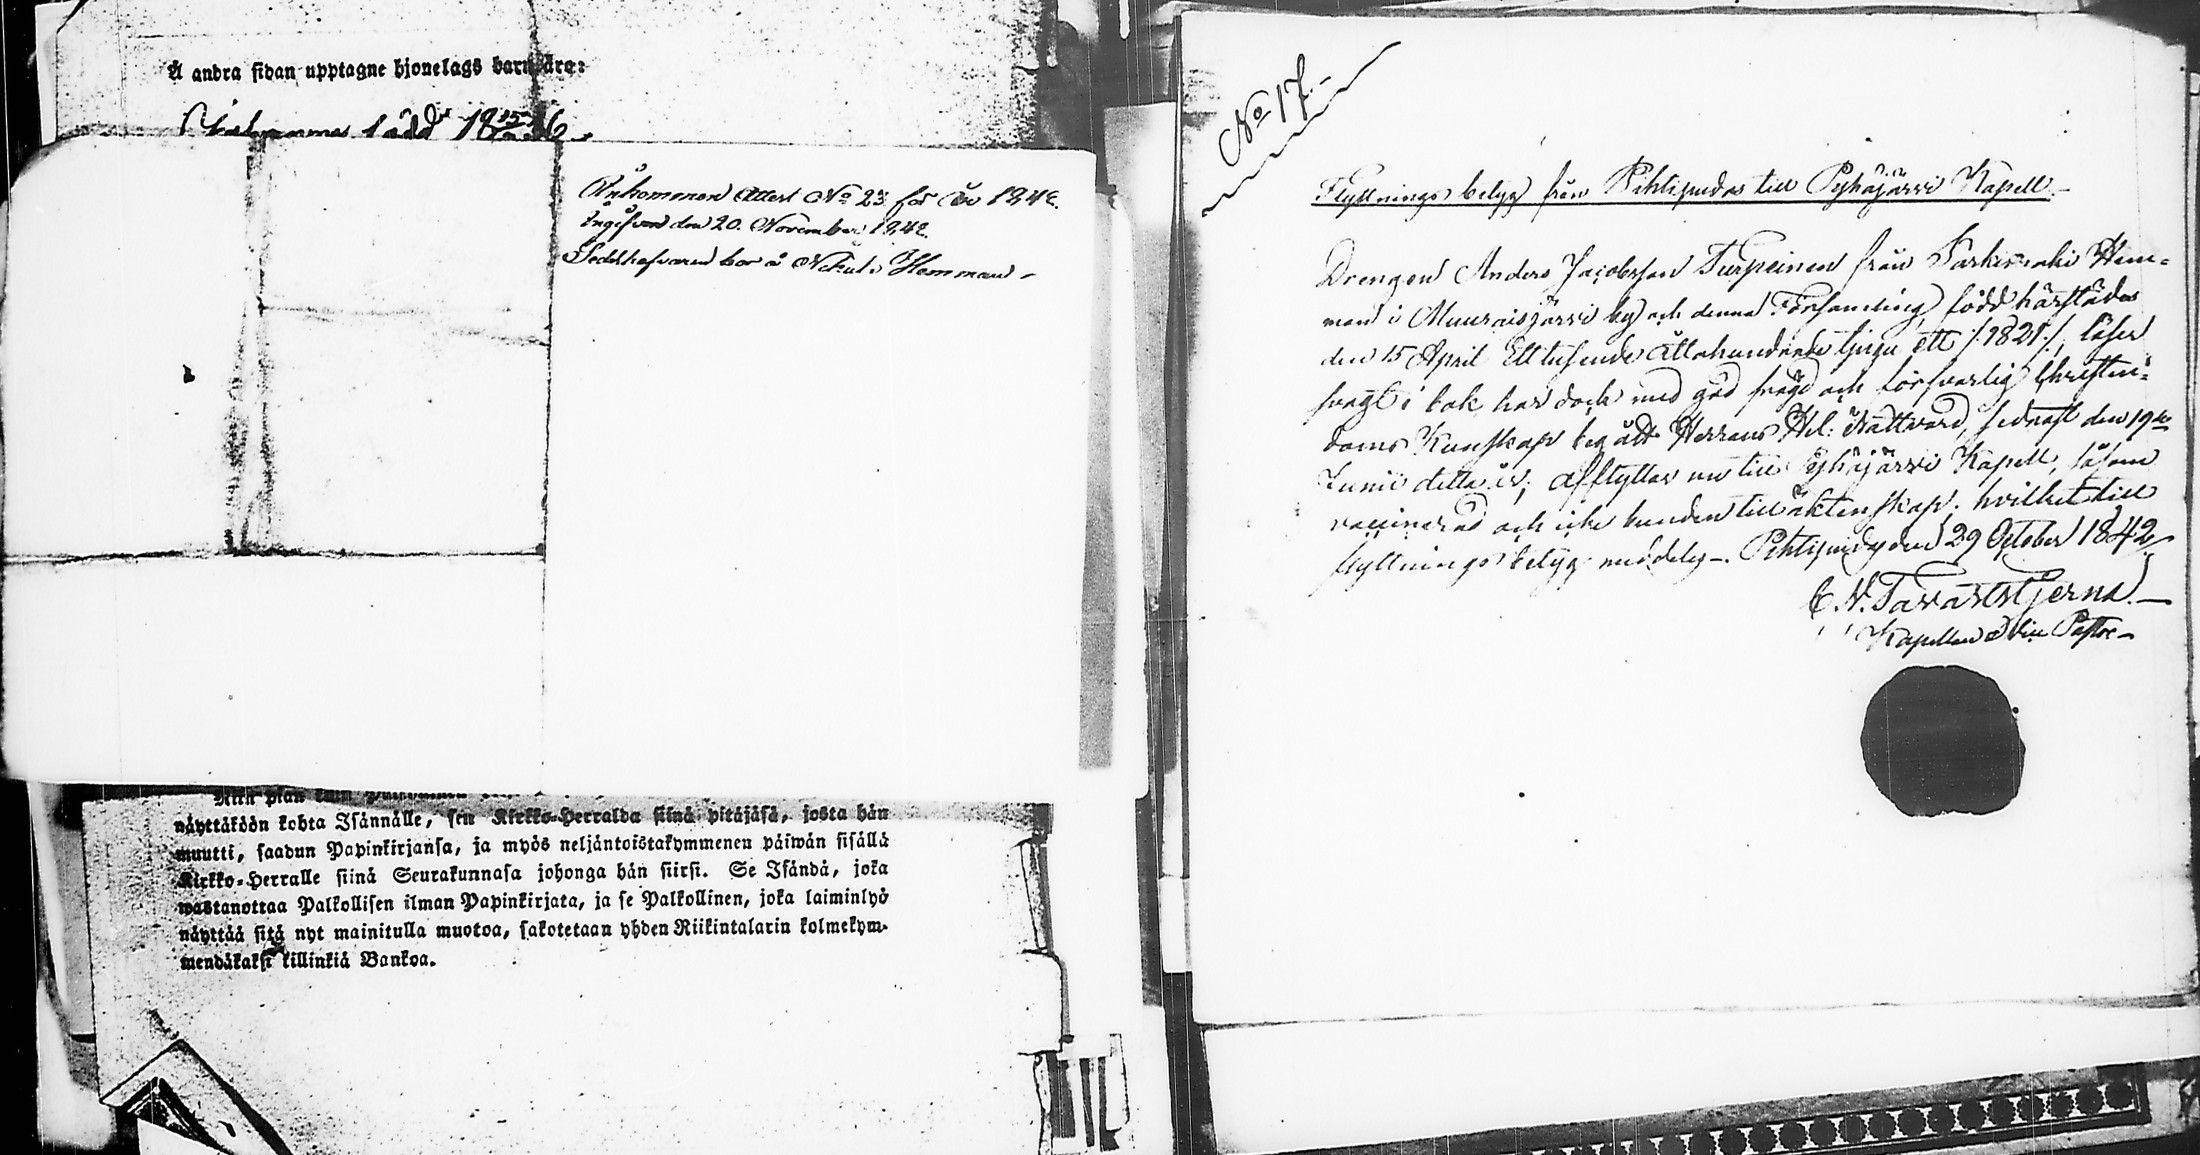 Å andra sidan upptagne hjonelags barn äro:
född 18
Ankommen Attest No 23 för År 1842.
Ingifven den 20. November 1842.
Sedelhafvaren bor å Nikula Hemman -
näyttäköön kohta Isännälle, sen Kirkko-Herralda siinä pitäjäsä, josta hän
muutti, saadun Papinkirjansa, ja myös neljäntoistakymmenen päiwän sisällä
Kirkko-Herralle siinä Seurakunnasa johonga hän siirsi. Se Isändä, joka
wastanottaa Palkollisen ilman Papinkirjata, ja se Palkollinen, joka laiminlyö
näyttää sitä nyt mainitulla muotoa, sakotetaan yhden Riikintalarin kolmekym-
mendäkaksi killinkiä Bankoa.
No 17.-
Flyttnings betyg från Pihtipudas till Pyhäjärvi Kapell.-
Drengen Anders Jacobsson Turpeinen från Hem-
man i Muuraisjärvi by och denna Församling, född härstädes
den 15 April Ett tusende åttahundrade tjugu ett /:1821:/, läser
svagt i bok har dock med god frägd och försvarlig Christen-
doms Kunskap begått Herrans Hel: Nattvard, sednast den 19de
Junii detta år; afflyttar nu till Pyhäjärvi Kapell, såsom
vaccinerad och icke bunden till äktenskap; hvilket till
flyttnings betyg meddelas-. Pihtipudas den 29 October 1842.
C. N. Tavaststjerna.-
Kapellan Vice Pastor-